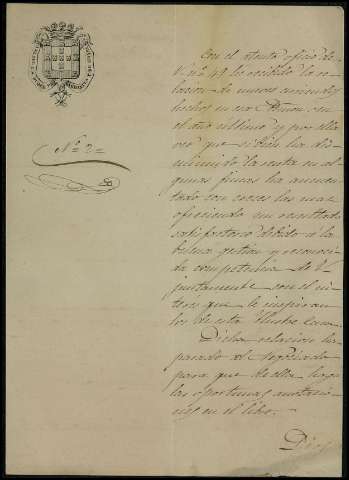 Nº 2=
Con el atento oficio de
V. nº 49 he recibido la re-
lacion de nuevos arriendos
hechos en esa Admon. en
el año último y por ella
veo que si bien ha dis-
minuido la renta en al-
gunas fincas ha aumen-
tado con creces las mas
ofreciendo un resultado
satisfactorio debido a la
buena gestion y reconoci-
da competencia de V.
juntamente con el in-
teres que le inspiran
los de esta Ilustre Casa.
Dicha relacion ha
pasado al Negociado
para que de ella haga
las oportunas anotacio-
nes en el libro.
Dios